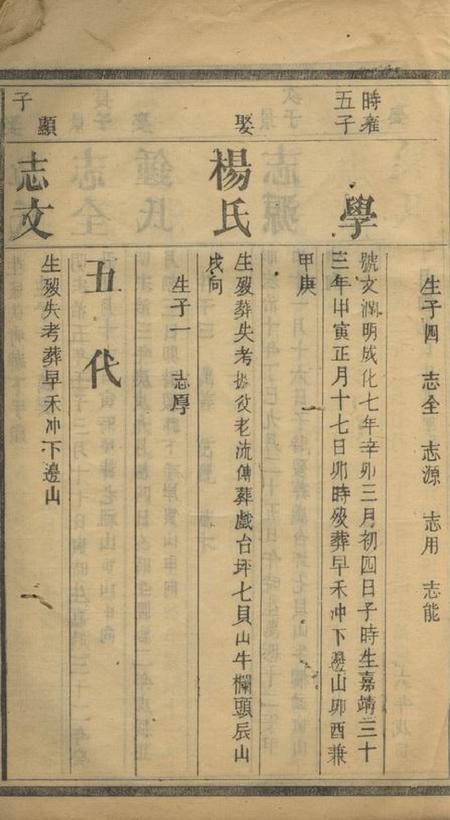 生子四 志全 志源 志用 志能
時雍
五子
學
號文澗明成化七年辛卯三月初四日子時生嘉靖三十
三年甲寅正月十七日卯時歿葬早禾冲下邊山卯酉兼
甲庚
娶
楊氏
生歿葬失考據父老流傳葬戲台坪七貝山牛欄頭辰山
戌向
生子一 志厚
五代
顯
子
志文
生歿失考葬早禾冲下邊山